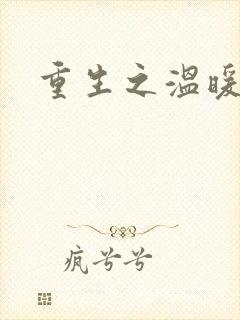 重生之温暖
疯兮兮